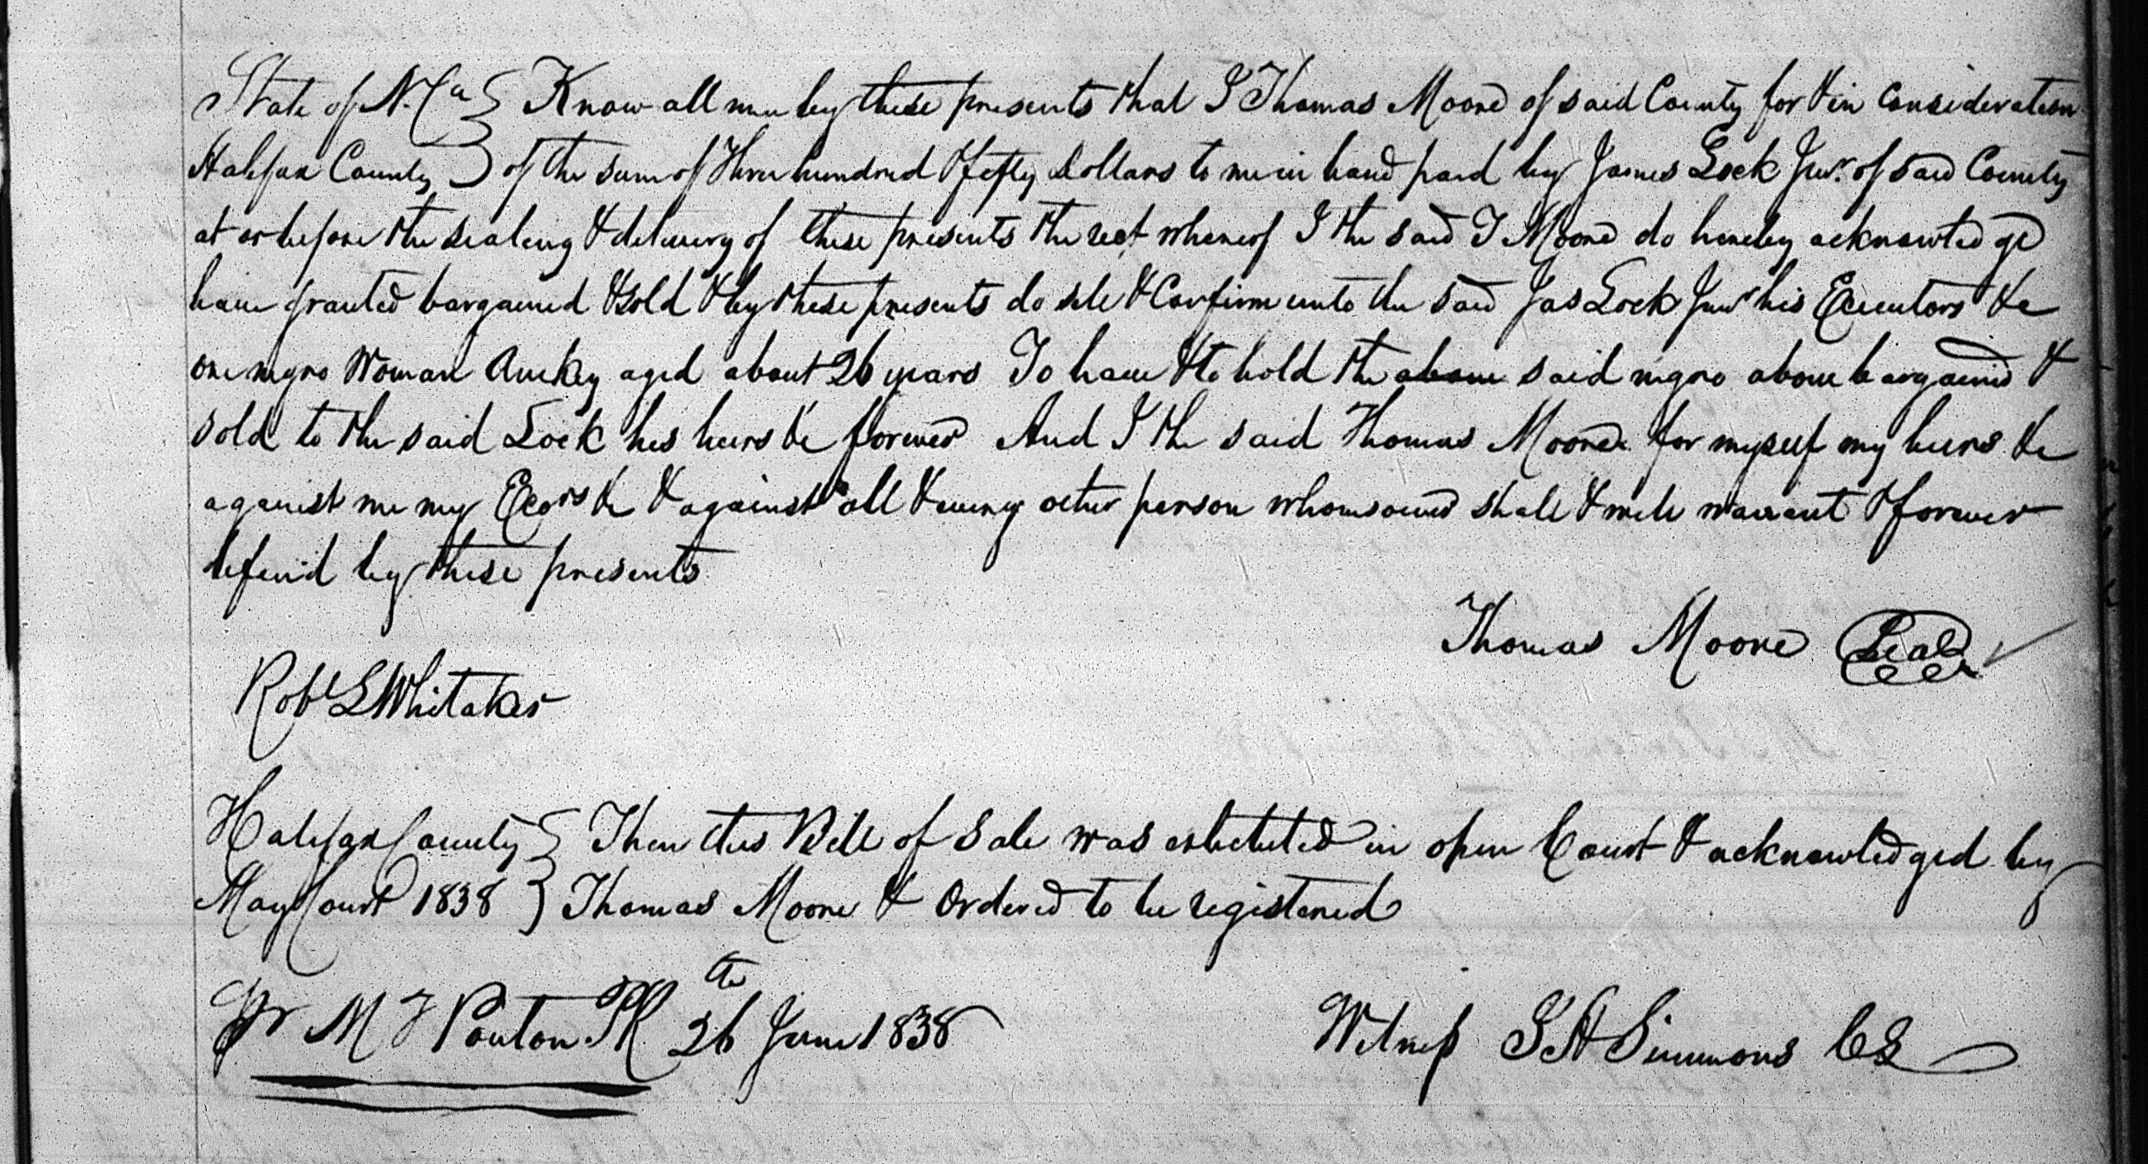 State of N. Ca } Know all men by these presents that I Thomas Moore of said County for & in consideration
Halifax County } of the sum of Three hundred & fifty Dollars to me in hand paid by James Lock Junr. of said County
at or before the sealing & delivery of these presents the rect whereof I the said T Moore do hereby acknowledge
have granted bargained & sold & by these presents do sele & Confirm unto the said Jas Lock Junr his Executors &c
one negro Woman aged about 26 years To have & to hold the above said negro above bargained &
sold to the said Lock his heirs &c forever And I the said Thomas Moore for myself my heirs &c
against me my Exors &c & against all & every other person whomsoever shall & will warrant & forever
defend by these presents
Thomas Moore Seal
Robt L Whitaker
Halifax County } Then this Bill of Sale was exhibited in open Court & acknowledged by
May Court 1838 } Thomas Moore & Ordered to be registered
Pr M T Ponton PR 26th June 1838
Witness S H Simmons Clk